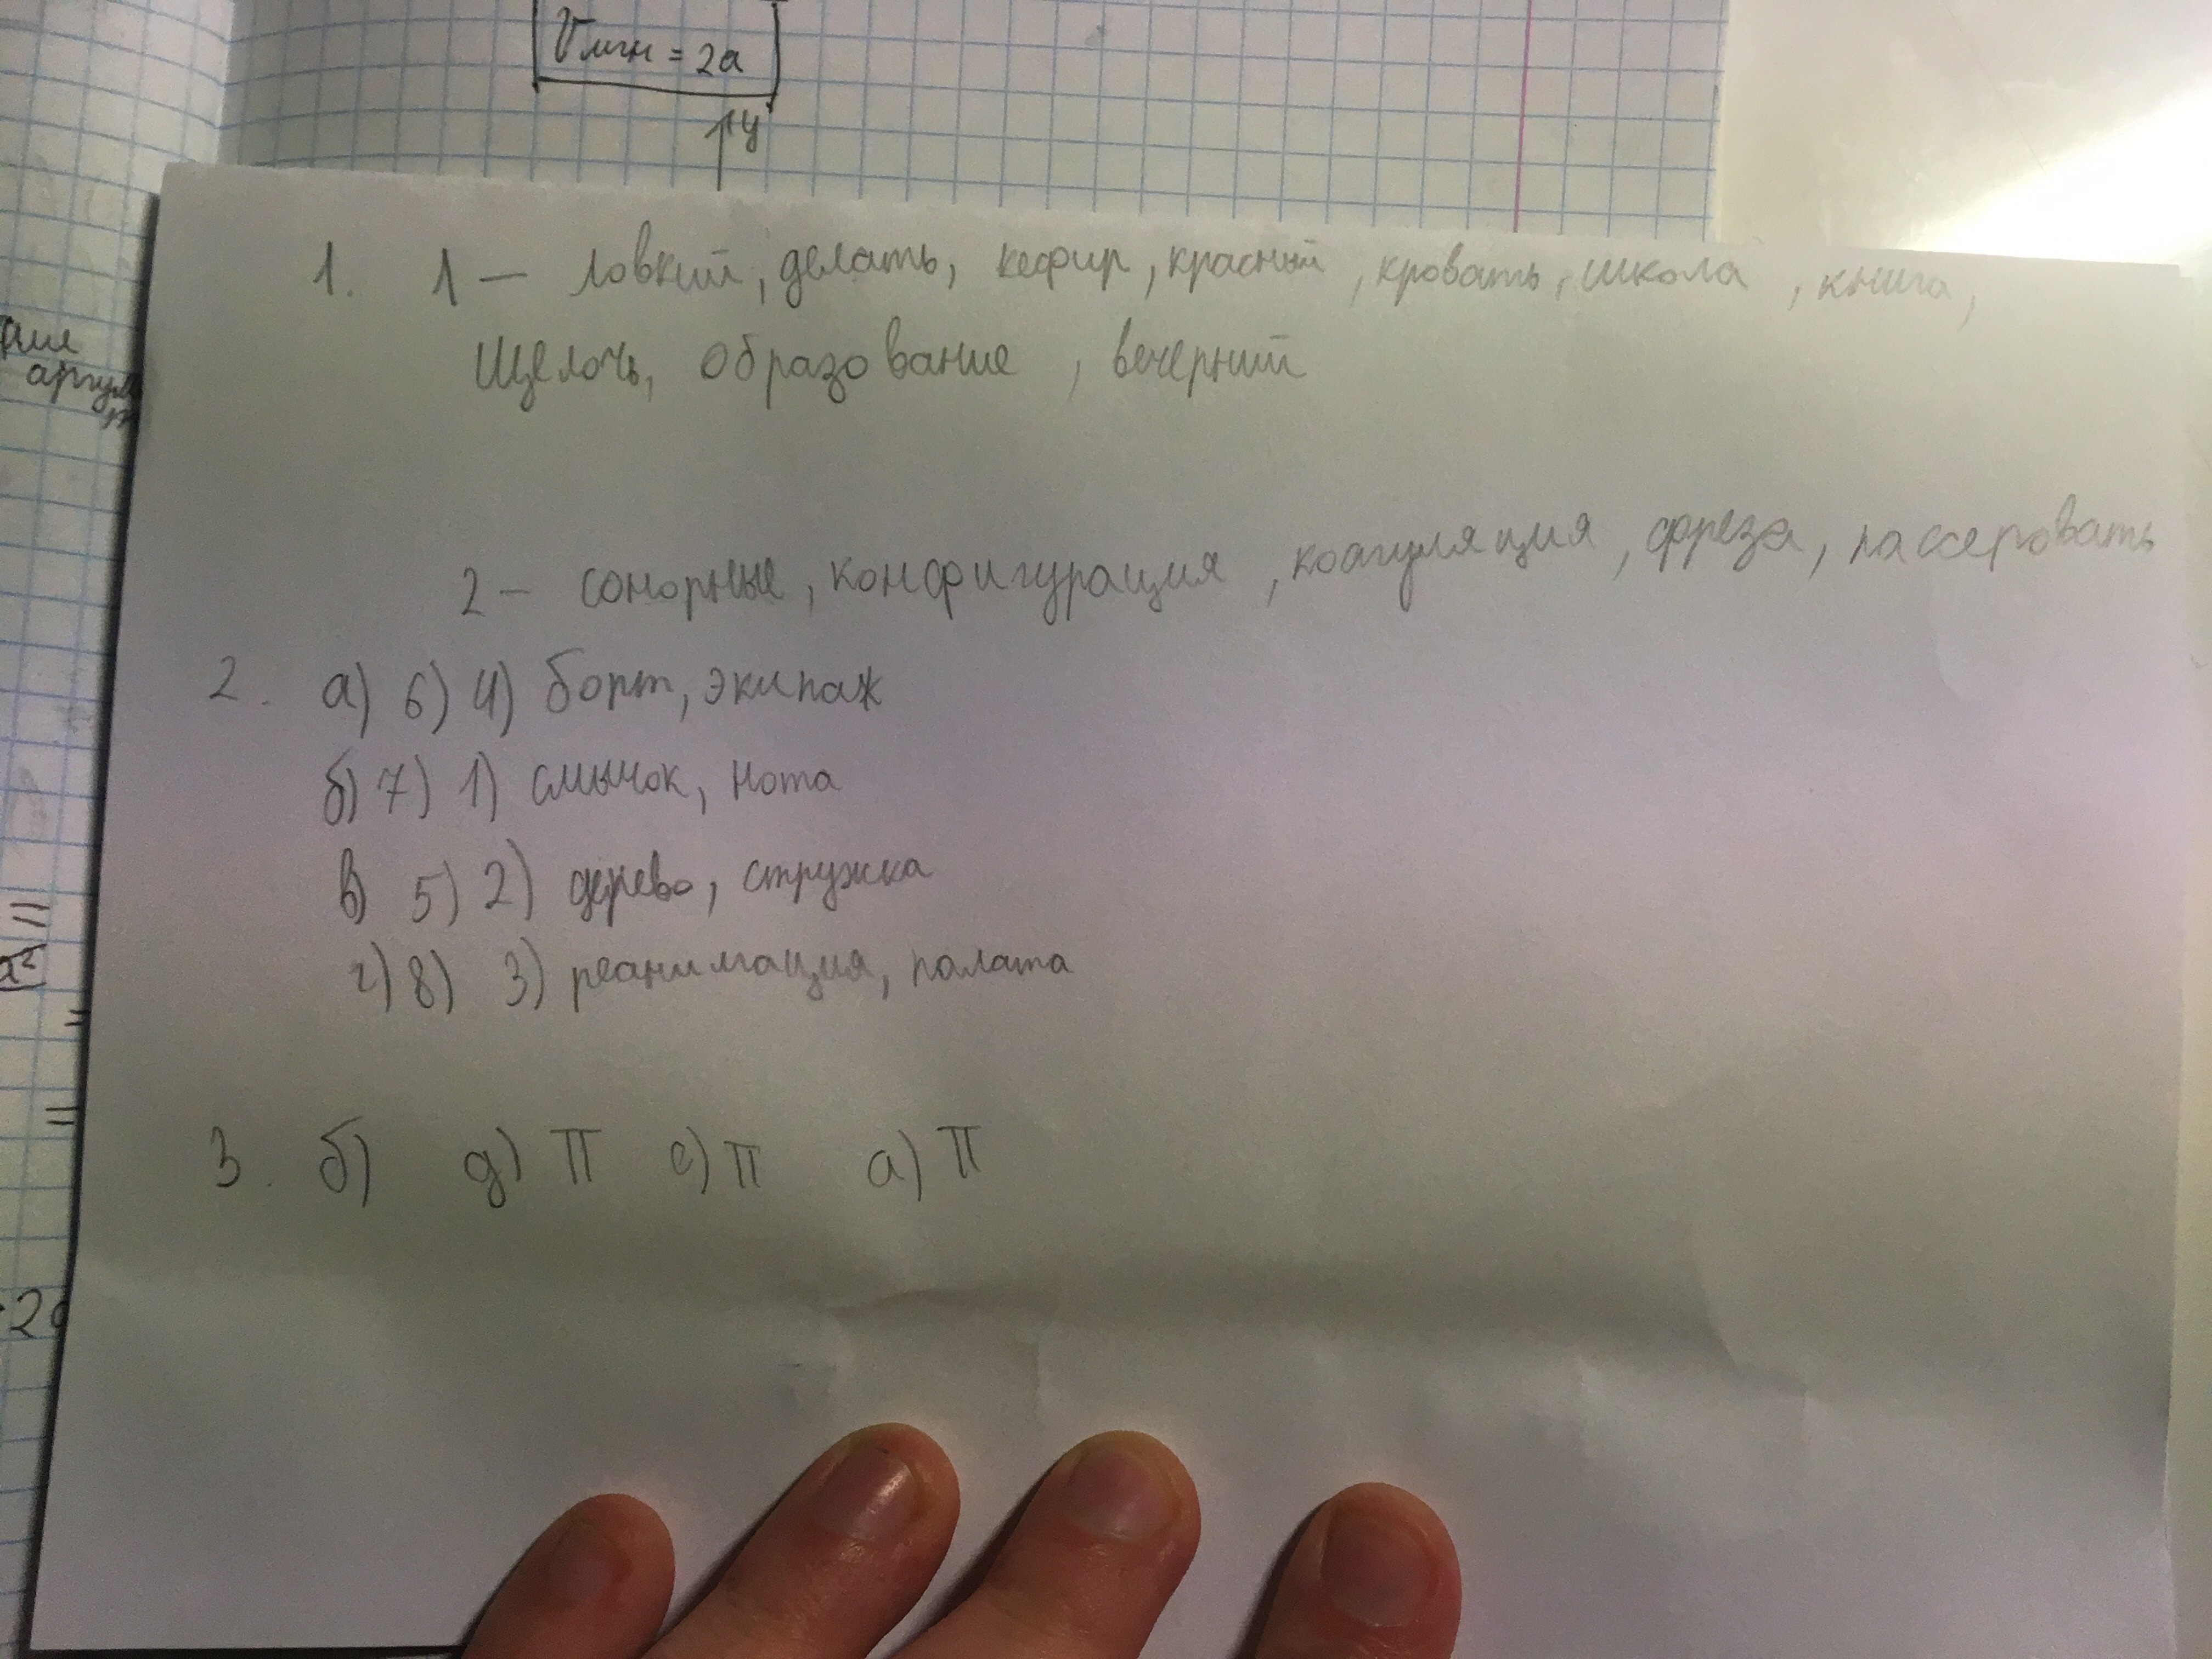 Vмгн = 2a
y
1. 1 — ловкий, делать, кефир, красный, кровать, школа, книга,
Щелочь, образование, вечерний
2 — сонорные, конфигурация, коагуляция, фреза, пассеровать
2. а) 6) 4) борт, экипаж
б) 7) 1) смычок, нота
в) 5) 2) дерево, стружка
г) 8) 3) реанимация, палата
3. б) д) П е) П а) П
=
a²
=
=